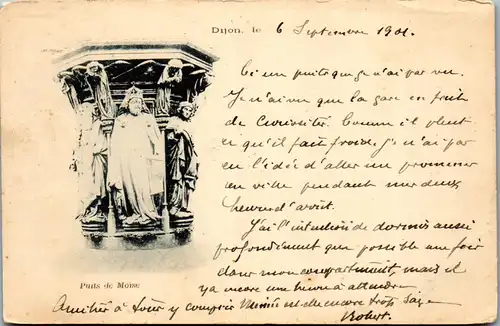 Dijon, le 6 Septembre 1901.
Ci un puits que je n'ai pas vu.
Je n'ai vu que la gare en fait
de curiosités. Comme il pleut
et qu'il fait froid, je n'ai pas
eu l'idée d'aller me promener
en ville pendant mes deux
heures d'arrêt.
J'ai l'intention de dormir aussi
profondément que possible une fois
dans mon compartiment, mais il
y a encore une heure à attendre
Puits de Moïse
Amitiés à tous y compris est encore trop
Robert.